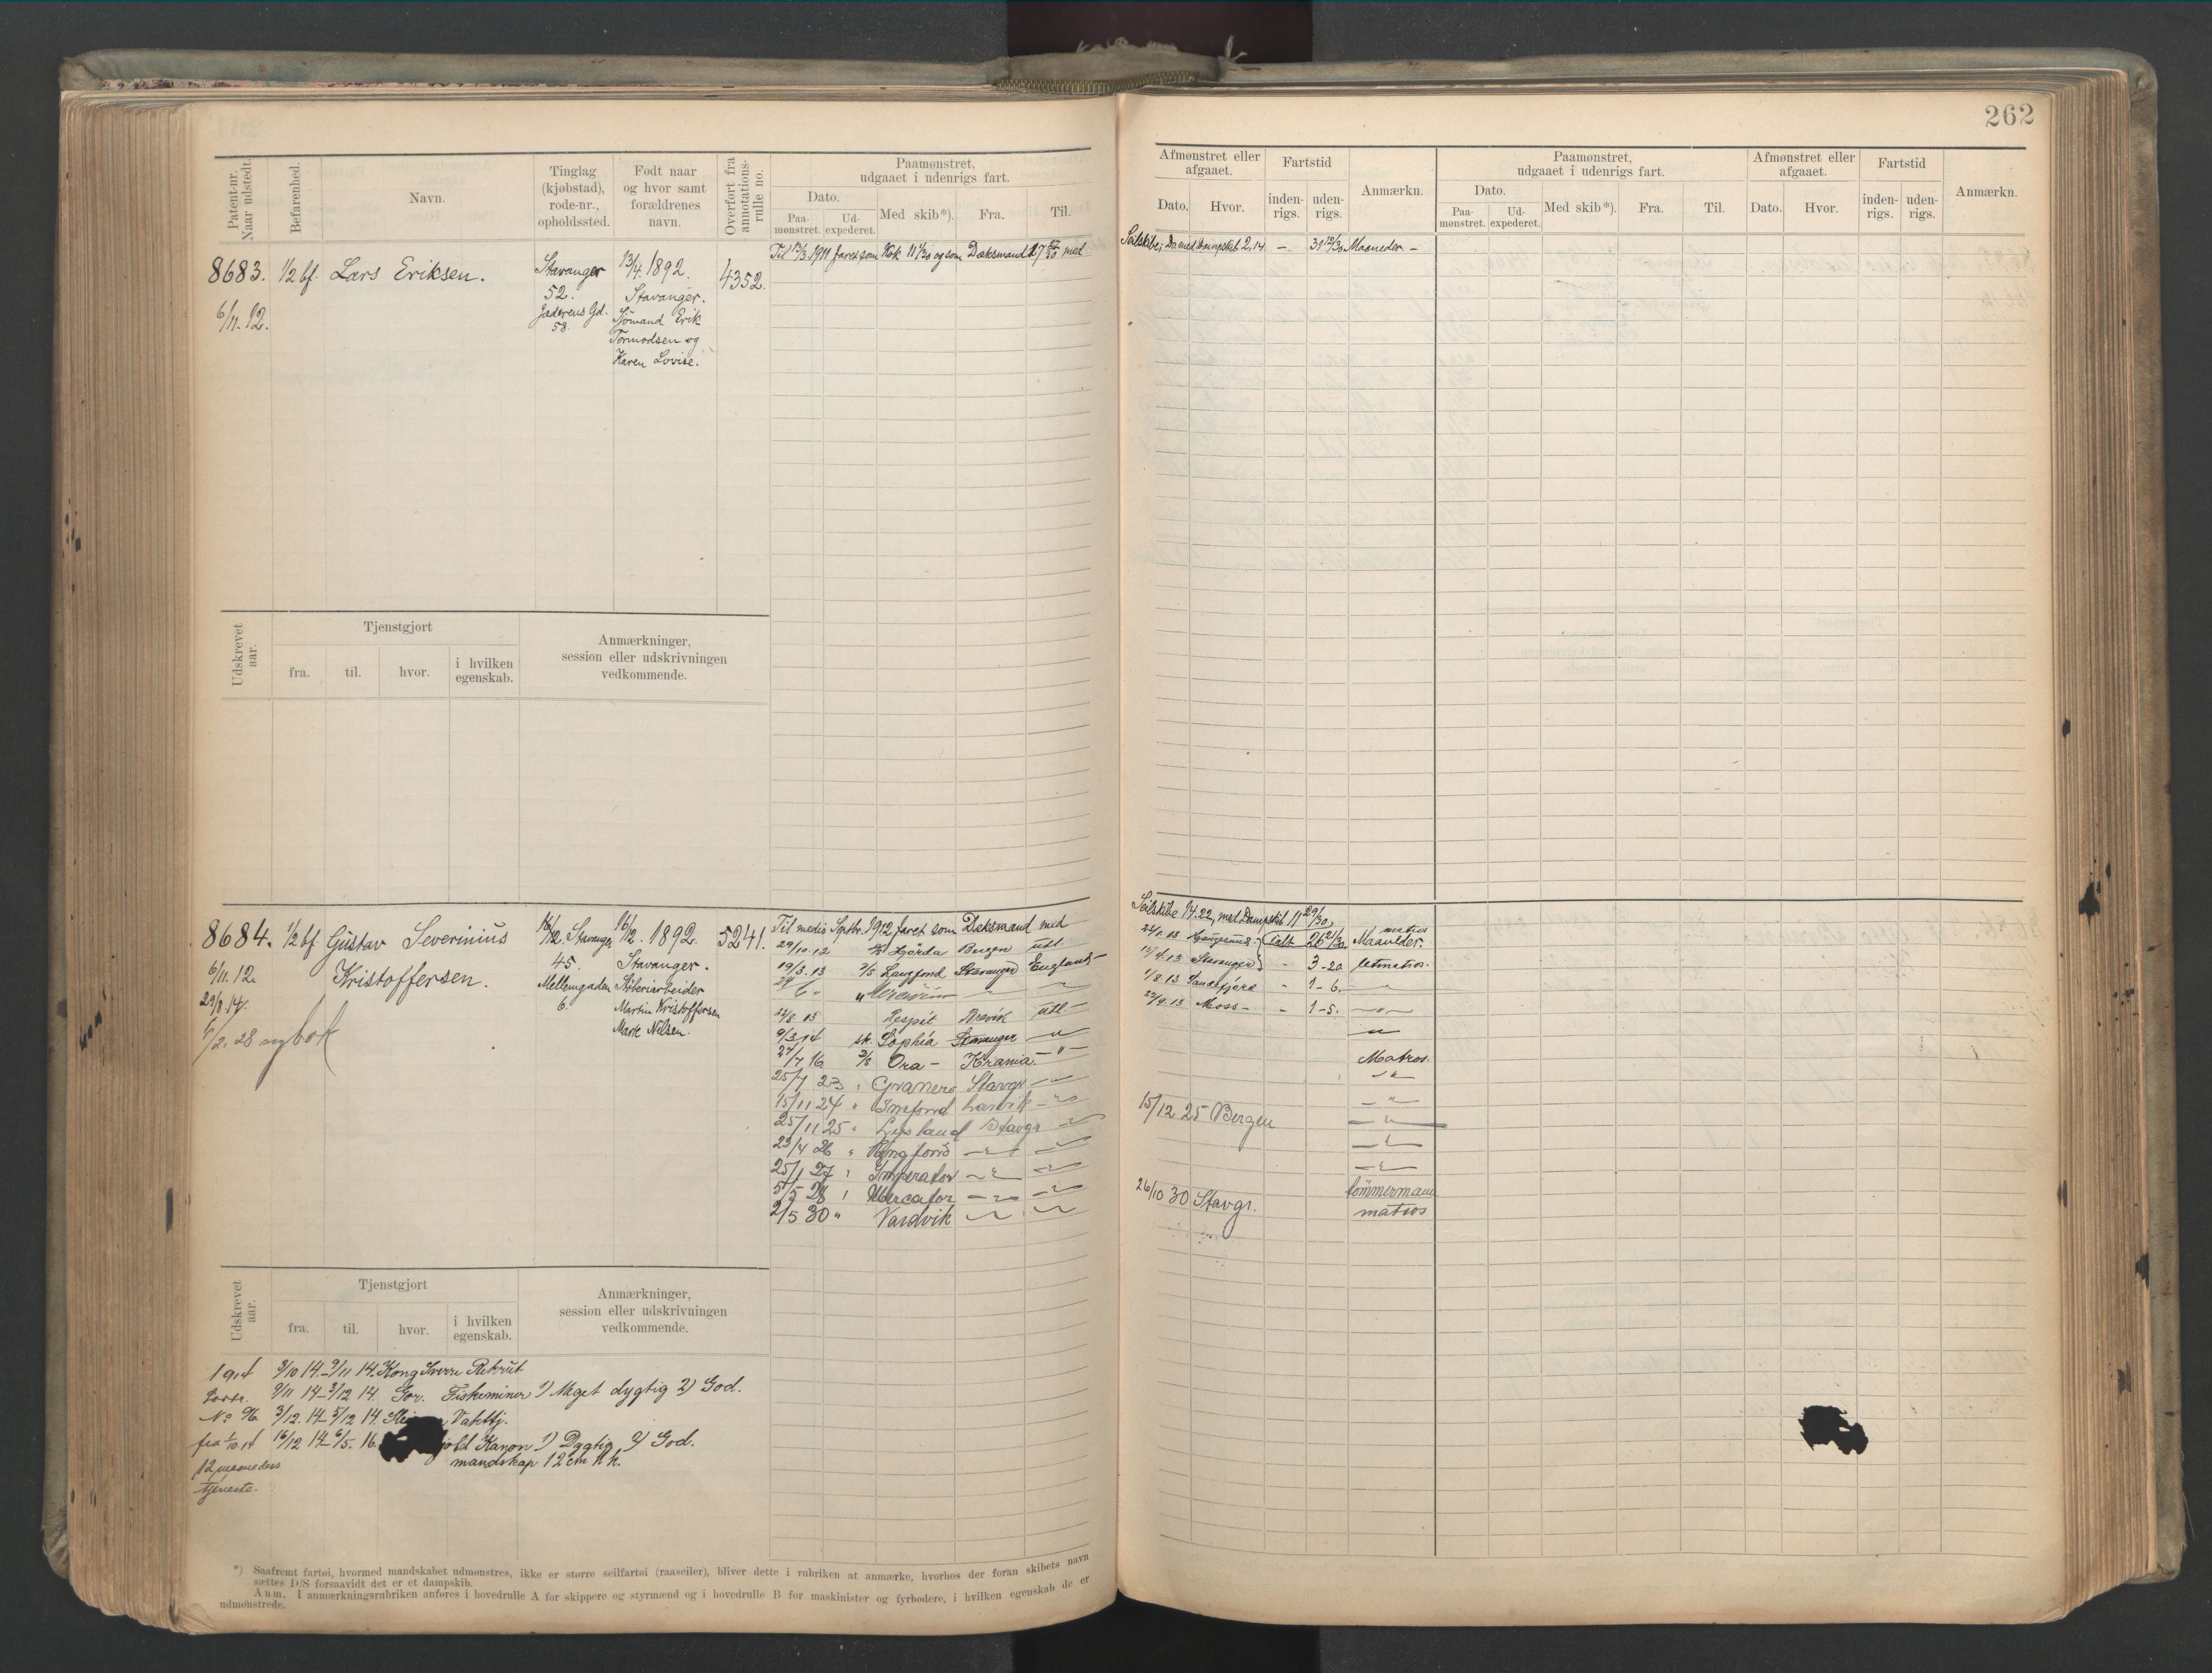 262
Patent-nr. Naar udstedt.
Befarenhed.
Navn.
Tinglag (kjøbstad), rode-nr., opholdssted.
Født naar og hvor samt forældrenes navn.
Overført fra annotations-rulle no.
Paamønstret, udgaaet i udenrigs fart.
Dato.
Paa-mønstret.
Ud-expederet.
Med skib*).
Fra.
Til.
Afmønstret eller afgaaet.
Dato.
Hvor.
Fartstid
inden-rigs.
uden-rigs.
Anmærkn.
Paamønstret, udgaaet i udenrigs fart.
Dato.
Paa-mønstret.
Ud-expederet.
Med skib*).
Fra.
Til.
Afmønstret eller afgaaet.
Dato.
Hvor.
Fartstid
inden-rigs.
uden-rigs.
Anmærkn.
8683. 1/2 bf. Lars Eriksen. Stavanger 13/4. 1892. 4352.
52. Stavanger.
6/11. 12. Jaderens Gd. Sjömand Erik
58. Tormodsen og
Karen Lovise.
1911 faret som Kok 11 1/30 og som Dæksmand 17 27/30 med
Seilskibe; Do med Dampskib 2,14 — 31 Maaneder —
Udskrevet aar.
Tjenstgjort
fra.
til.
hvor.
i hvilken egenskab.
Anmærkninger, session eller udskrivningen vedkommende.
8684. 1/2 bf. Gustav Severinius 16/12. Stavanger 16/12. 1892. 5241.
6/11. 12. Kristoffersen. 45. Stavanger.
29/8. 14. Mellemgaden
6. Martin Kristoffersen
6/2. 28 ny bok Marie Nilsen.
Til medio Septbr. 1912 faret som Dæksmand med
Seilskibe 14.22, med Dampskib 11 29/30,
29/10.12 Bergen utl.
Talt 26 21/30 Maaneder. matros
19/3.13 D/S Langfond Stavanger England
17/4.13 Stavanger - 3-20 letmatros.
1/8.13 Sandefjord - 1-6. — " —
8.13 Respit Brevik utl —
22/9.13 Moss — - 1-5. — " —
9/3 14 sk. Sophia Stavanger — " —
27/7 16 D/S Ora — Krania — " — Matros.
25/7 23 " Granero Stavgr — " —
15/11 24 " Larvik — " —
25/11 25 " Lysland Stavgr — " —
15/12 25 Bergen — " —
23/4 26 " Ringfond — " —
25/1 27 " Imperator — " —
5/5 28 " Mercator — " — tömmermand
2/5 30 " Vardvik — " —
26/10 30 Stavgr. matros
Udskrevet aar.
Tjenstgjort
fra.
til.
hvor.
i hvilken egenskab.
Anmærkninger, session eller udskrivningen vedkommende.
1914 3/10 14.–9/11 14. Kong Sverre Rekrut
9/11 14–3/12 14. Gor. Fiskeminer 1) Meget dygtig 2) God.
No 96 3/12. 14–5/12 14. Vakttj.
fra 1/10 14 16/12 14–6/5. 16. Kanon 1) Dygtig 2) God.
12 maaneders mandskap 12 cm h k.
tjeneste.
*) Saafremt fartøi, hvormed mandskabet udmønstres, ikke er større seilfartøi (raaseiler), bliver dette i rubriken at anmærke, hvorhos der foran skibets navn
sættes D/S forsaavidt det er et dampskib.
Anm. I anmærkningsrubriken anføres i hovedrulle A for skippere og styrmænd og i hovedrulle B for maskinister og fyrbødere, i hvilken egenskab de er
udmønstrede.